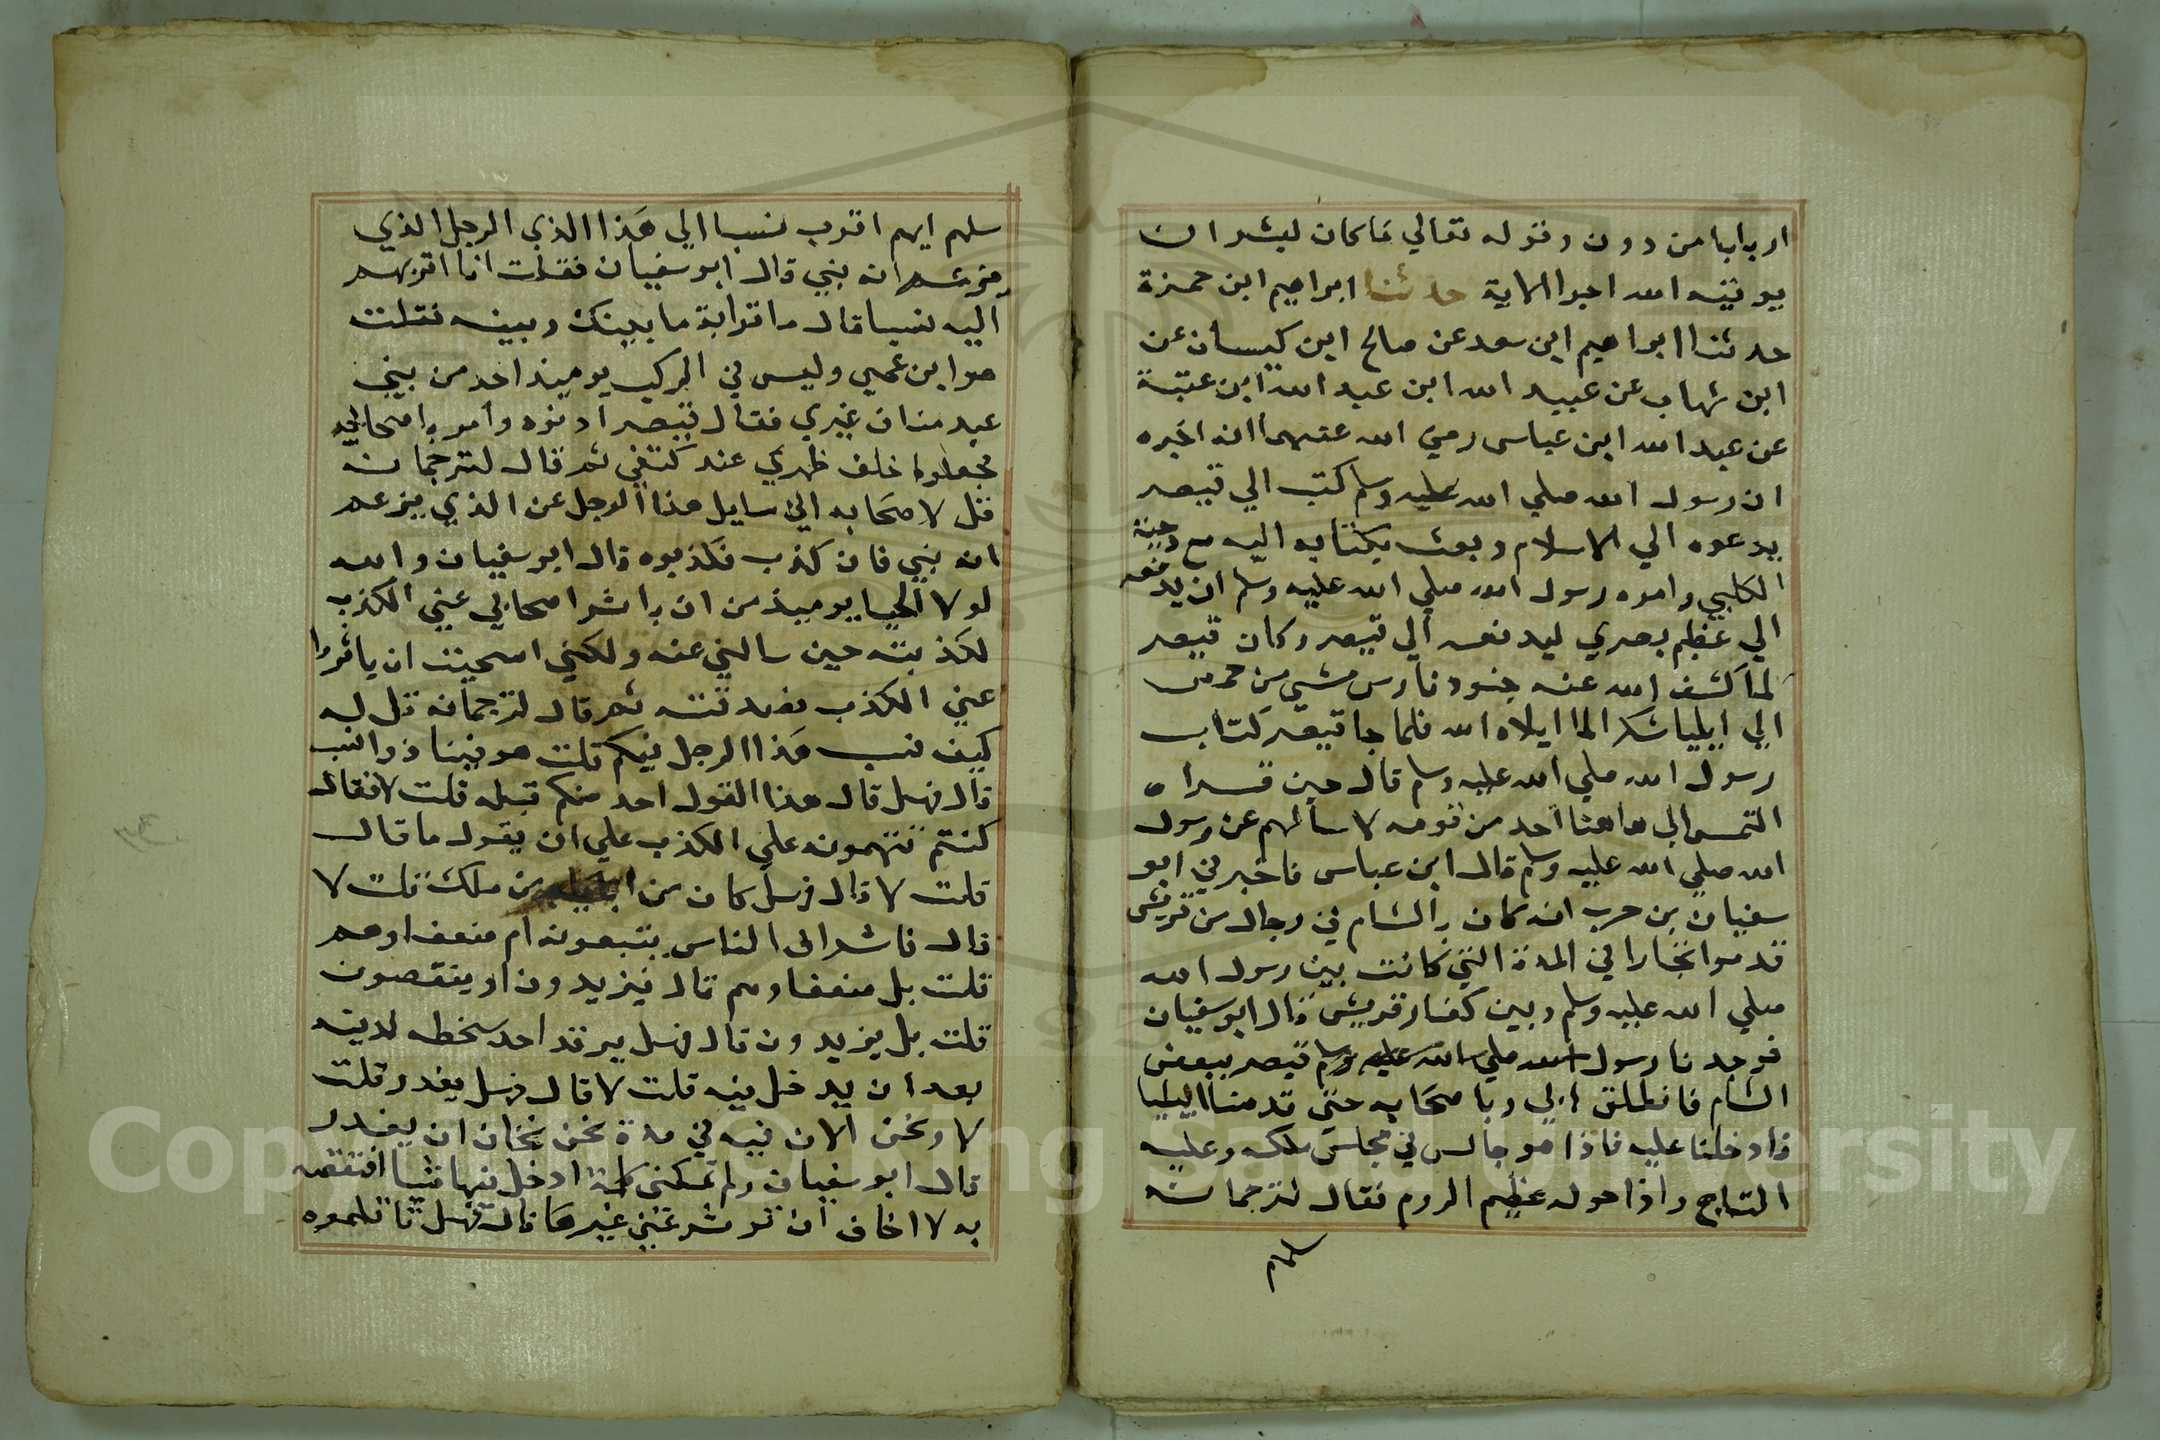 اربابا من دون وقوله تعالي ماكان لبشر ان
يوتيه الله اجوا الاية حدثنا ابراهيم ابن حمزة
حدثنا ابراهيم ابن سعد عن صالح ابن كيسان عن
ابن شهاب عن عبيد الله ابن عبد الله ابن عتبة
عن عبد الله ابن عباس رضي الله عنهما انه اخبره
ان رسول الله صلي الله عليه وسلم كتب الي قيصر
يدعوه الي الاسلام وبعث بكتابه اليه مع دحية
الكلبي وامره رسول الله صلي الله عليه وسلم ان يدفعه
الي عظيم بصري ليدفعه الي قيصر وكان قيصر
لما كشف الله عنه جنود فارس مشي من حمص
الي ايليا شكرا لما ابلاه الله فلما جا قيصر كتاب
رسول الله صلي الله عليه وسلم قال حين قراه
التمسوا لي هاهنا احد من قومه لاسالهم عن رسول
الله صلي الله عليه وسلم قال ابن عباس فاخبرني ابو
سفيان بن حرب انه كان بالشام في رجال من قريش
قدموا تجارا في المدة التي كانت بين رسول الله
صلي الله عليه وسلم وبين كفار قريش قال ابو سفيان
فوجدنا رسول الله صلي الله عليه وسلم قيصر ببعض
الشام فانطلق بي وباصحابه حتي قدمنا ايليا
فادخلنا عليه فاذا هو جالس في مجلس ملكه وعليه
التاج واذا حوله عظيم الروم فقال لترجمانه
سلهم
سلهم ايهم اقرب نسبا الي هذا الذي الرجل الذي
يزعم انه نبي قال ابو سفيان فقلت انا اقربهم
اليه نسبا قال ما قرابة ما بينك وبينه فقلت
هو ابن عمي وليس في الركب يوميذ احد من بني
عبد مناف غيري فقال قيصر ادنوه وامر باصحابي
فجعلوا خلف ظهري عند كتفي ثم قال لترجمانه
قل لاصحابه اني سايل هذا الرجل عن الذي يزعم
انه نبي فان كذب فكذبوه قال ابو سفيان والله
لولا الحيا يوميذ من ان ياثر اصحابي عني الكذب
لكذبته حين سالني عنه ولكني استحييت ان ياثروا
عني الكذب فصدقته ثم قال لترجمانه قل له
كيف نسب هذا الرجل فيكم قلت هو فينا ذو النسب
قال فهل قال هذا القول احد منكم قبله قلت لا فقال
كنتم تتهمونه علي الكذب علي ان يقول ما قال
قلت لا قال فهل كان من ابايه من ملك قلت لا
قال فاشراف الناس يتبعونه ام ضعفاوهم
قلت بل ضعفاوهم قال فيزيدون او ينقصون
قلت بل يزيدون قال فهل يرتد احد سخطه لدينه
بعد ان يدخل فيه قلت لا قال فهل يغدر قلت
لا ونحن الان فيه في مدة نحن نخاف ان يغدر
قال ابو سفيان ولم تمكني كلمة ادخل فيها شيا انتقصه
به لا اخاف ان توثر عني غيرها قال فهل قاتلتموه